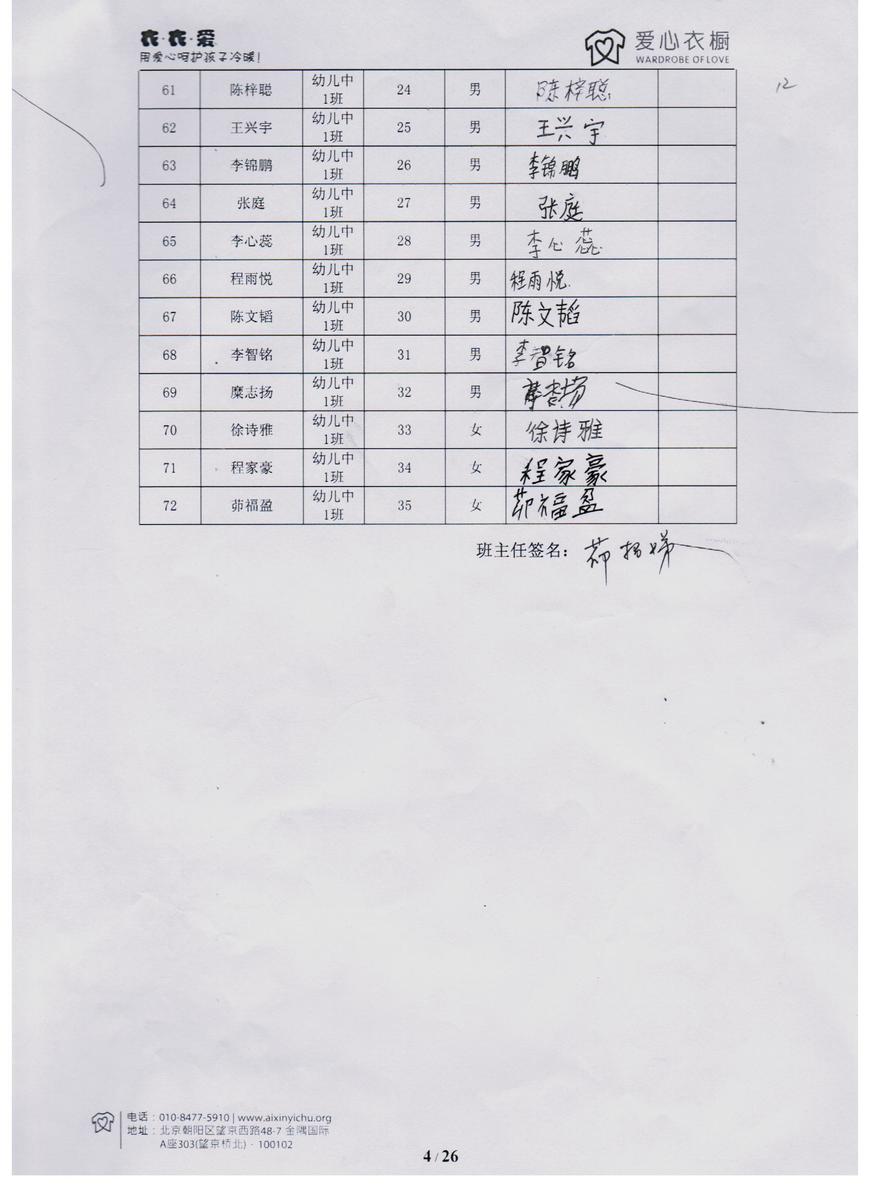 衣·衣·爱
用爱心呵护孩子冷暖!
爱心衣橱
WARDROBE OF LOVE
12
61 陈梓聪 幼儿中1班 24 男 陈梓聪
62 王兴宇 幼儿中1班 25 男 王兴宇
63 李锦鹏 幼儿中1班 26 男 李锦鹏
64 张庭 幼儿中1班 27 男 张庭
65 李心蕊 幼儿中1班 28 男 李心蕊
66 程雨悦 幼儿中1班 29 男 程雨悦
67 陈文韬 幼儿中1班 30 男 陈文韬
68 李智铭 幼儿中1班 31 男 李智铭
69 糜志扬 幼儿中1班 32 男
70 徐诗雅 幼儿中1班 33 女 徐诗雅
71 程家豪 幼儿中1班 34 女 程家豪
72 茆福盈 幼儿中1班 35 女 茆福盈
班主任签名:
电话:010-8477-5910 | www.aixinyichu.org
地址:北京朝阳区望京西路48-7 金隅国际
A座303(望京桥北)·100102
4 / 26